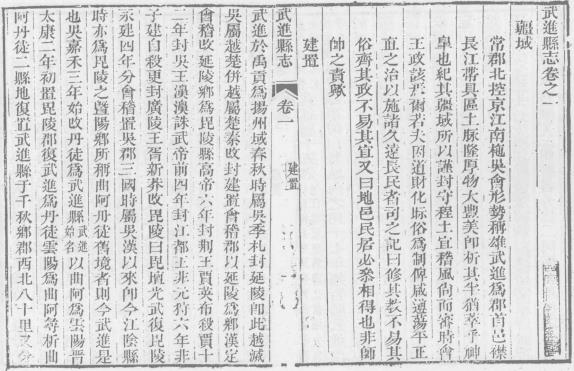 武進縣志卷之一
疆域
常郡北控京江南挹吳會形勢稱雄武進爲郡首邑襟
長江帶具區土脉厚物大豐美卽析其半猶孝乎神
皐也紀其疆域所以謹封守程土宜稽風尙而審時會
王政該于術若夫因道財化賑俗爲制俾咸遵蕩平正
直之治以施諸久遠長民者司之記曰修其教不易其
俗齊其政不易其宜又曰地邑民居必參相得也非師
帥之責歟
建置
武進縣志
卷一
建置
武進於禹貢爲揚州域春秋時屬吳季札封延陵卽此越滅
吳屬越楚併越屬楚秦改封建置會稽郡以延陵爲鄉漢定
會稽改延陵鄉爲毘陵縣高帝六年封荆王賈英布殺賈十
二年封吳王濞濞誅武帝前四年封江都王非元狩六年非
子建自殺更封廣陵王胥新莽改毘陵曰毘壇光武復毘陵
永建四年分會稽置吳郡三國時屬吳漢以來卽今江陰縣
時亦爲毘陵之曁陽鄉所稱曲阿丹徒舊境者則今武進是
也吳嘉禾三年始改丹徒爲武進縣武進始名以曲阿爲雲陽晉
太康二年初置毘陵郡復武進爲丹徒雲陽爲曲阿等析曲
阿丹徒二縣地復置武進縣于千秋鄉郡西北八十里又分